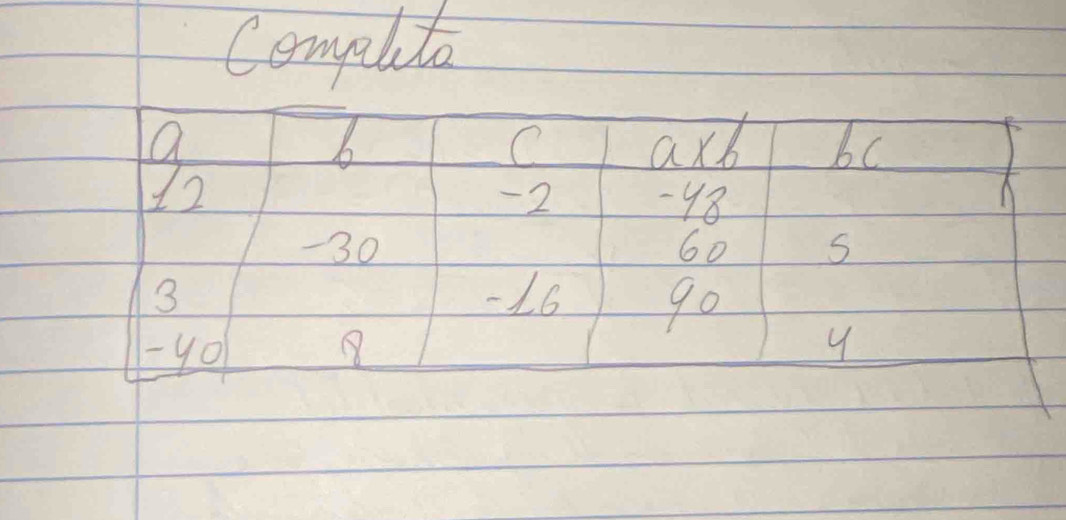 Completa
a b c axb bc
12 -2 -48
-30 60 5
3 -16 90
-40 8 4